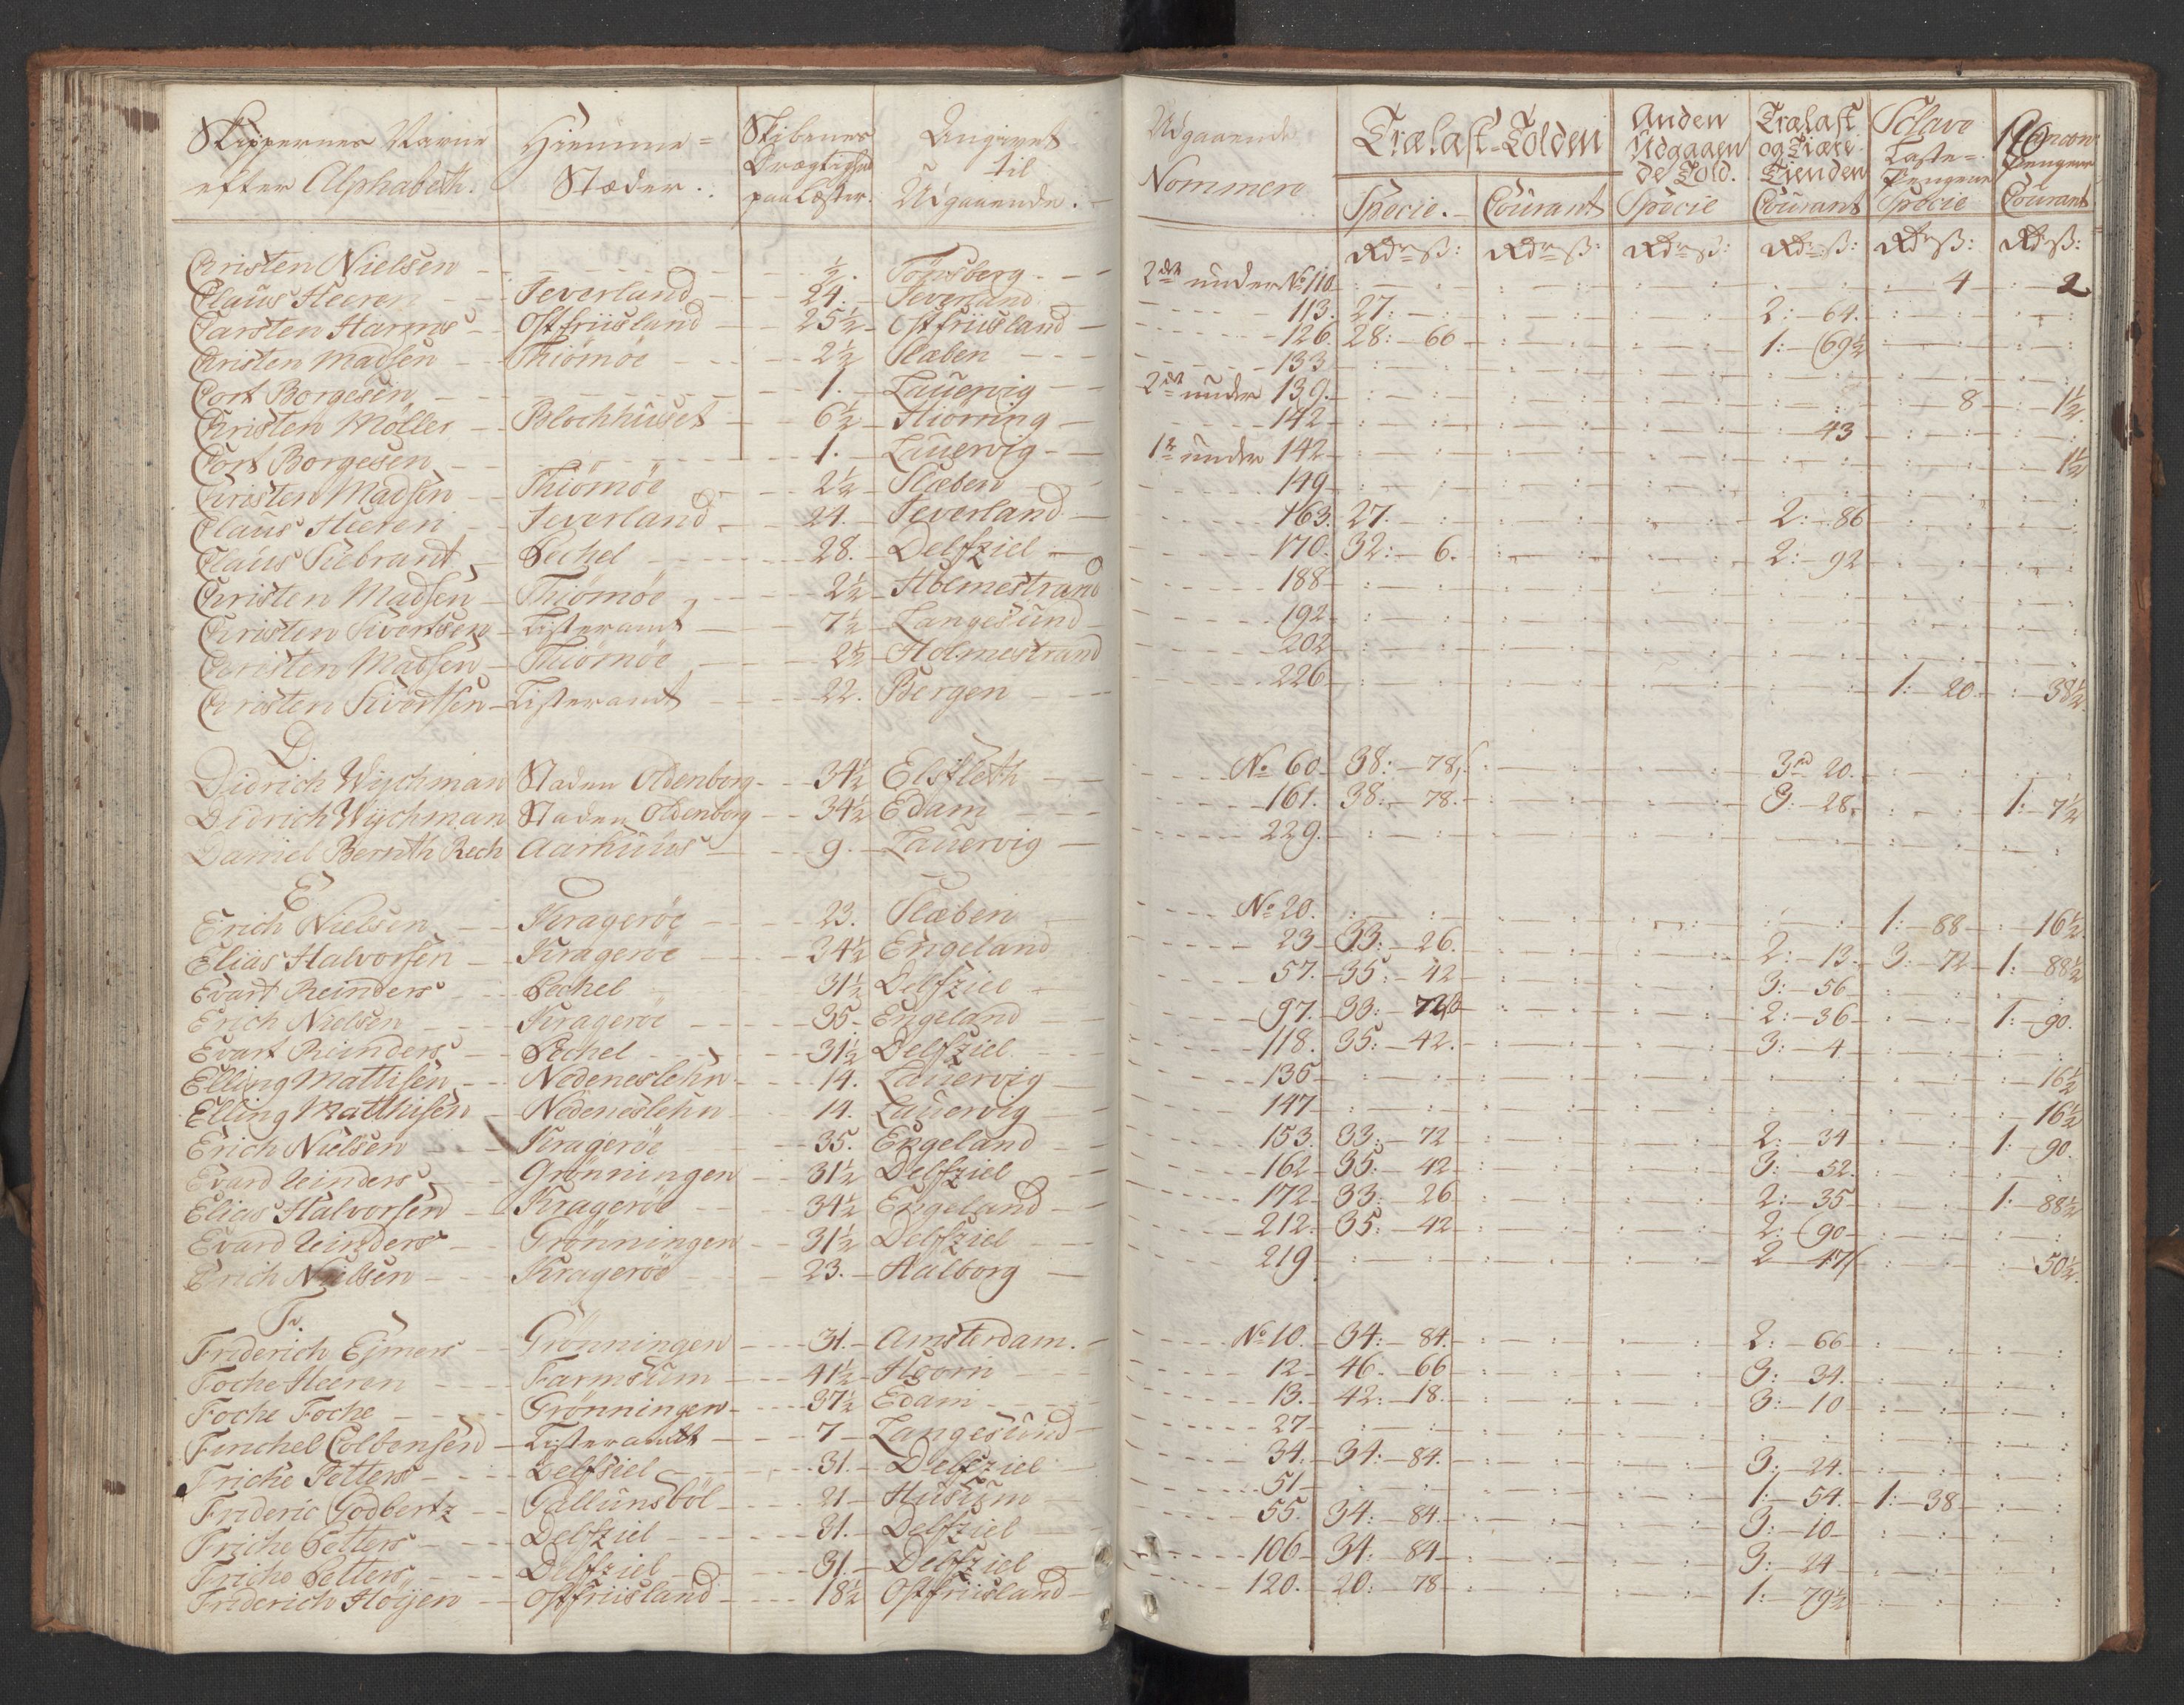 Skippernes Navne efter Alphabeth. | Hiemme= Stæder. | Skibenes Drægtighed paa Læster. | Angivet til Udgaaende.
Udgaaende Nommere | Trælast-Tolden | Anden Udgaaen de Told. | Trælast og Tiære Tienden | Sclave Caste= Pengene | Pengene
Specie. | Courant | Specie | Courant | Specie | Courant
Rdr ß: | Rdr ß: | Rdr ß: | Rdr ß: | Rdr ß: | Rdr ß:
Christen Nielsen | ½. | Tönsberg | 2de under No 110 | 4 | 2
Claus Heeren | Jeverland | 24. | Jeverland | 113. | 27: | 2: 64.
Carsten Harms | Ostfriisland | 25½ | Ostfriisland | 126. | 28: 66 | 1: 69½
Christen Madsen | Thiömöe | 2½ | Slæben | 133
Cort Borgesen | 1. | Lauervig | 2de under 139. | 8 | 1½
Christen Möller | Blochhuset | 6½ | Hiörring | 142 | 43
Cort Borgesen | 1. | Lauervig | 1n under 142 | 1½
Christen Madsen | Thiömöe | 2½ | Slæben | 149
Claus Heeren | Jeverland | 24. | Jeverland | 163. | 27. | 2: 86
Claus Siebrant | Pechel | 28. | Delfziel | 170. | 32: 6. | 2: 92
Christen Madsen | Thiömöe | 2½ | Holmestrand | 188
Christen Sivertsen | Listeramt | 7½ | Langesund | 192
Christen Madsen | Thiömöe | 2½ | Holmestrand | 202
Christen Sivertsen | Listeramt | 22. | Bergen | 226 | 1: 20 | 38½
D.
Didrich Wychman | Staden Oldenborg | 34½ | Elsfleth | No 60 | 38: 78 | 3: 20.
Didrich Wychman | Staden Oldenborg | 34½ | Edam | 161. | 38: 78. | 3: 28. | 1: 7½
Daniel Bernth Rech | Aarhuus | 9. | Lauervig | 229.
E
Erich Nielsen | Kragerøe | 23. | Slæben | No 20. | 1: 88 | 16½
Elias Halvorsen | Kragerøe | 34½ | Engeland | 23 | 33: 26. | 2: 13. | 3: 72 | 1: 88½
Evart Reinders | Pechel | 31½ | Delfziel | 57. | 35: 42 | 3: 56
Erich Nielsen | Kragerøe | 35 | Engeland | 97. | 33: 72 | 2: 36 | 1: 90.
Evart Reinders | Pechel | 31½ | Delfziel | 118. | 35: 42. | 3: 4
Elling Mattisen | Nedeneslehn | 14. | Lauervig | 135 | 16½
Elling Matthisen | Nedeneslehn | 14. | Lauervig | 147 | 16½
Erich Nielsen | Kragerøe | 35. | Engeland | 153. | 33: 72 | 2: 34 | 1: 90.
Evard Reinders | Grönningen | 31½ | Delfziel | 162 | 35: 42 | 3: 52.
Elias Halvorsen | Kragerøe | 34½ | Engeland | 172 | 33: 26 | 2: 35 | 1: 88½
Evard Reinders | Grönningen | 31½ | Delfziel | 212. | 35: 42 | 2: 90
Erich Nielsen | Kragerøe | 23. | Aalborg | 219 | 2 47 | 50½.
F.
Friderich Ejmers | Grönningen | 31. | Amsterdam. | No 10. | 34: 84. | 2: 66
Foche Heeren | Farmsum | 41½ | Hoorn | 12 | 46. 66 | 3: 34.
Foche Foche | Grönningen | 37½ | Edam | 13. | 42: 18. | 3: 10
Finchel Colbensen | Listeramt | 7 | Langesund | 27
Friche Petters | Delfziel | 31. | Delfziel | 34. | 34: 84. | 3: 24.
Frideric Godbertz | Gallunsböl | 21 | Husum | 51 | 1: 54. | 1: 38
Friche Petters | Delfziel | 31. | Delfziel | 55. | 34: 84. | 3: 10
Friche Petters | Delfziel | 31. | Delfziel | 106 | 34: 84 | 3: 24
Friderich Höijen | Ostfriisland | 18½ | Ostfriisland | 120. | 20: 78 | 1: 79½